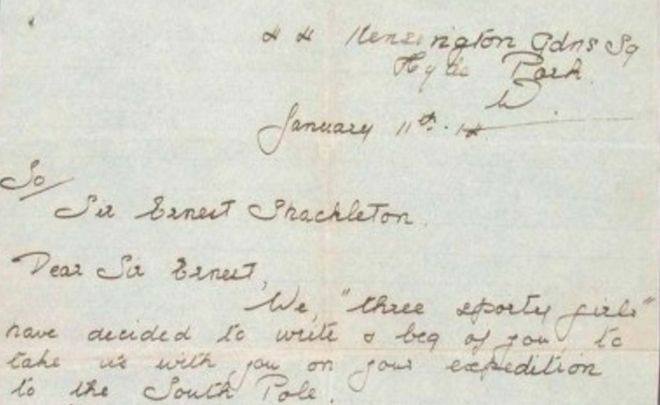 44 Kensington Gdns Sq
Hyde Park.
W.
January 11th. 14
To/
Sir Ernest Shackleton.
Dear Sir Ernest,
We, "three sporty girls"
have decided to write & beg of you, to
take us with you on your expedition
to the South Pole.